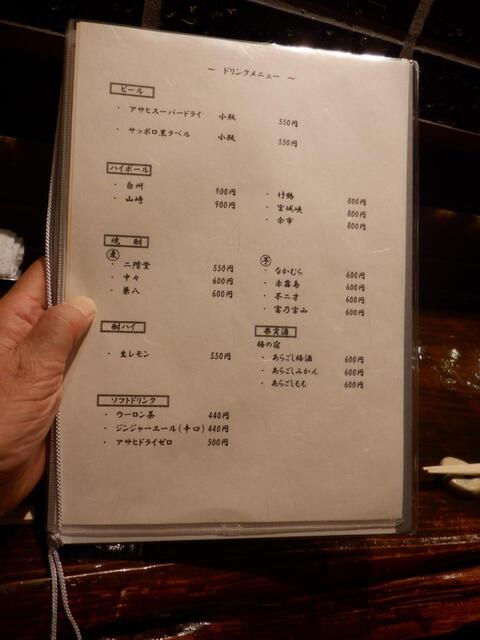 ～ ドリンクメニュー ～
ビール
・ アサヒスーパードライ 小瓶 550円
・ サッポロ黒ラベル 小瓶 550円
ハイボール
・ 白州 900円
・ 山崎 900円
・ 竹鶴 800円
・ 宮城峡 800円
・ 余市 800円
焼 酎
麦
・ 二階堂 550円
・ 中々 600円
・ 兼八 600円
芋
・ なかむら 600円
・ 赤霧島 600円
・ 不二才 600円
・ 富乃宝山 600円
酎ハイ
・ 生レモン 550円
果実酒
梅の宿
・ あらごし梅酒 600円
・ あらごしみかん 600円
・ あらごしもも 600円
ソフトドリンク
・ ウーロン茶 440円
・ ジンジャーエール(辛口) 440円
・ アサヒドライゼロ 500円